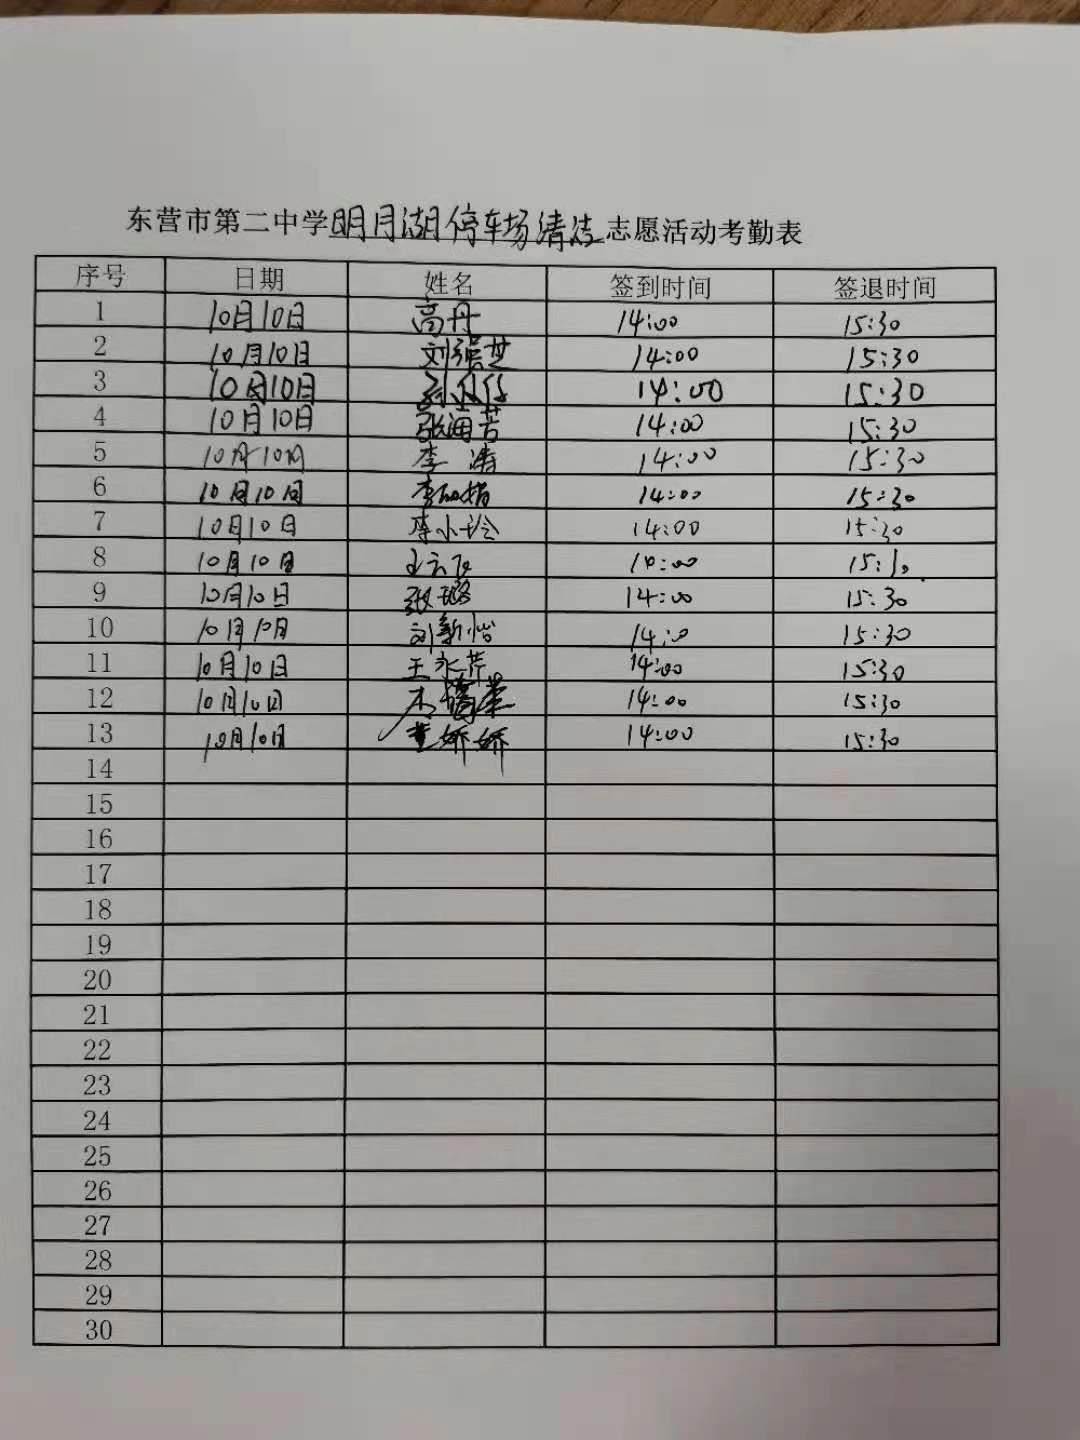 东营市第二中学明月湖停车场清洁志愿活动考勤表
序号 日期 姓名 签到时间 签退时间
1 10月10日 高丹 14:00 15:30
2 10月10日 刘强芝 14:00 15:30
3 10月10日 14:00 15:30
4 10月10日 张海芳 14:00 15:30
5 10月10日 李涛 14:00 15:30
6 10月10日 14:00 15:30
7 10月10日 李小玲 14:00 15:30
8 10月10日 15:30
9 10月10日 张璐 14:00 15:30
10 10月10日 刘新怡 14:0 15:30
11 10月10日 王永芹 14:00 15:30
12 10月10日 14:00 15:30
13 10月10日 董娇娇 14:00 15:30
14
15
16
17
18
19
20
21
22
23
24
25
26
27
28
29
30